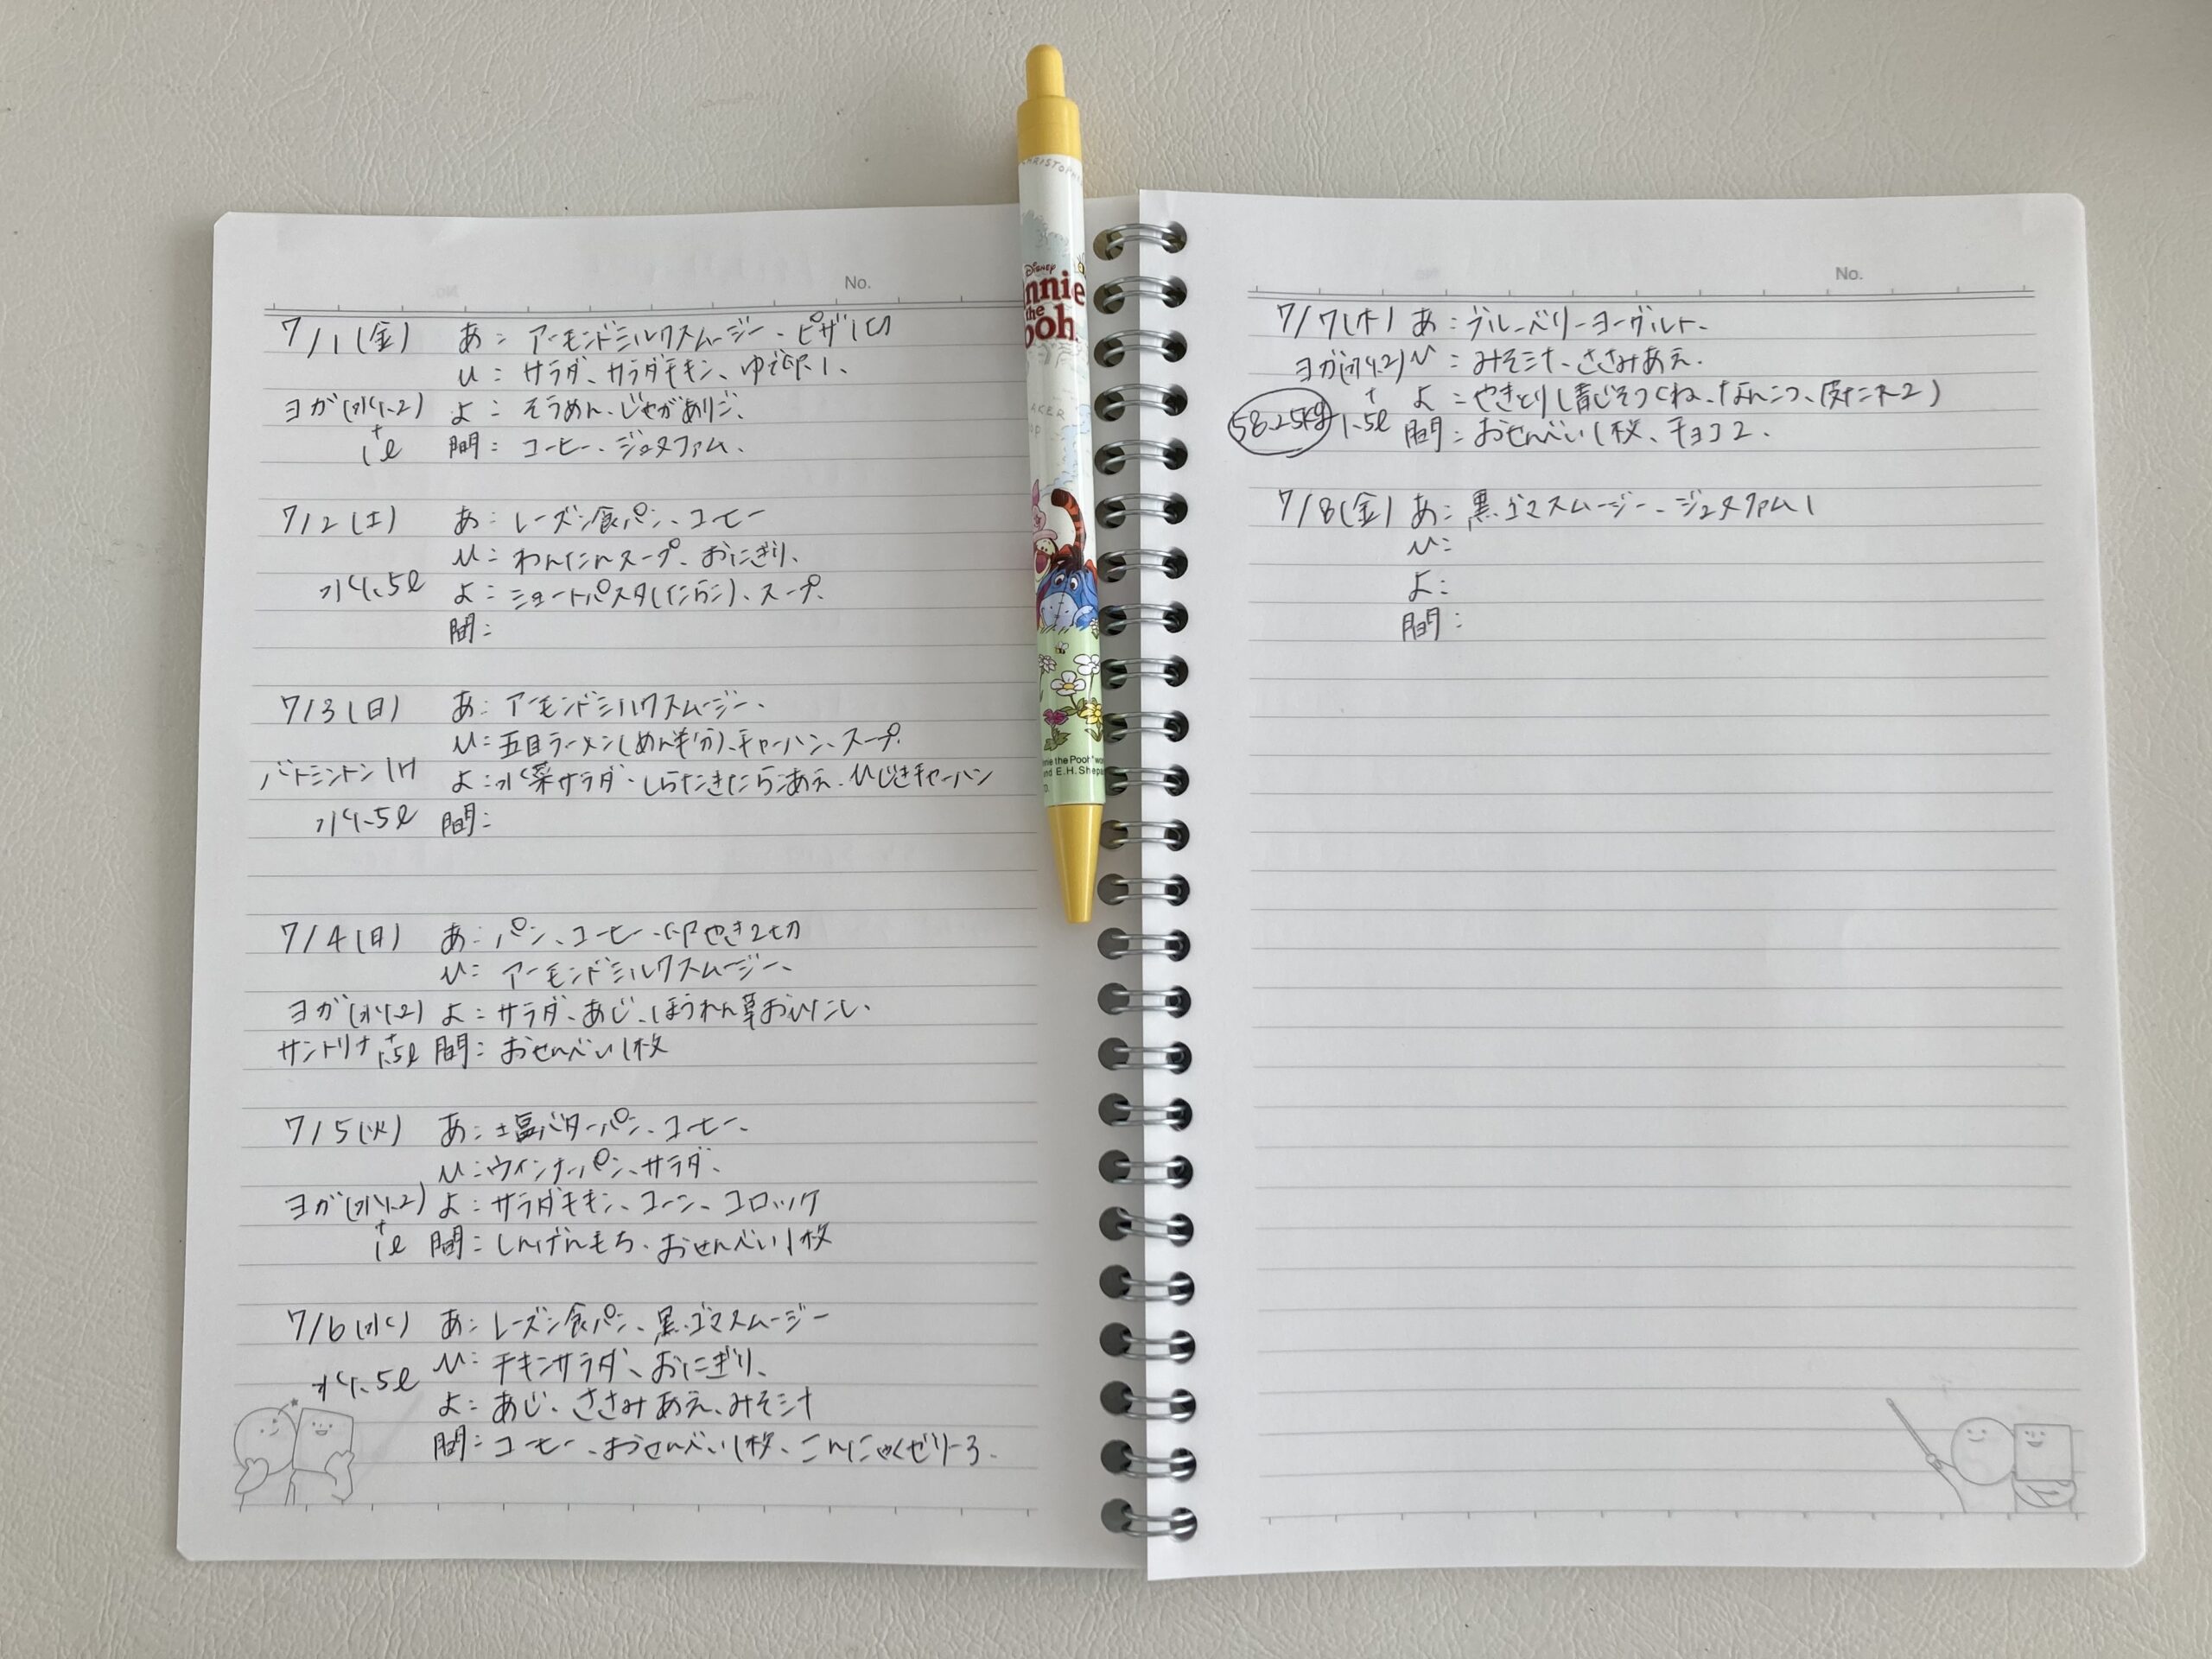 No.
7/1(金) あ: アーモンドミルクスムージー、ピザ1切
ひ: サラダ、サラダチキン、ゆで卵1、
ヨガ(水1.2) よ: そうめん、じゃがありご、
+1ℓ 間: コーヒー、ジュヌファム、
7/2(土) あ: レーズン食パン、コーヒー
ひ: わんたんスープ、おにぎり、
水1.5ℓ よ: ショートパスタ(たらこ)、スープ、
間:
7/3(日) あ: アーモンドミルクスムージー、
ひ: 五目ラーメン(めん半分)、チャーハン、スープ、
バトミントン1H よ: 水菜サラダ、しらたきたらこあえ、ひじきチャーハン
水1.5ℓ 間:
7/4(日) あ: パン、コーヒー、卵やき2切
ひ: アーモンドミルクスムージー、
ヨガ(水1.2) よ: サラダ、あじ、ほうれん草おひたし、
サントリナ +1.5ℓ 間: おせんべい1枚
7/5(火) あ: 塩バターパン、コーヒー、
ひ: ウインナーパン、サラダ、
ヨガ(水1.2) よ: サラダチキン、コーン、コロッケ
+1ℓ 間: しんげんもち、おせんべい1枚
7/6(水) あ: レーズン食パン、黒ゴマスムージー
ひ: チキンサラダ、おにぎり、
水1.5ℓ
よ: あじ、ささみあえ、みそ汁
間: コーヒー、おせんべい1枚、こんにゃくゼリー3、
Disney
nnie
the
ooh
nie the Pooh" wor
nd E.H. Shep
No.
7/7(木) あ: ブルーベリーヨーグルト、
ヨガ(水1.2) ひ: みそ汁、ささみあえ、
+ よ: やきとり(青じそつくね、なんこつ、皮たれ2)
58.25kg 1.5ℓ 間: おせんべい1枚、チョコ2、
7/8(金) あ: 黒ゴマスムージー、ジュヌファム1
ひ:
よ:
間: